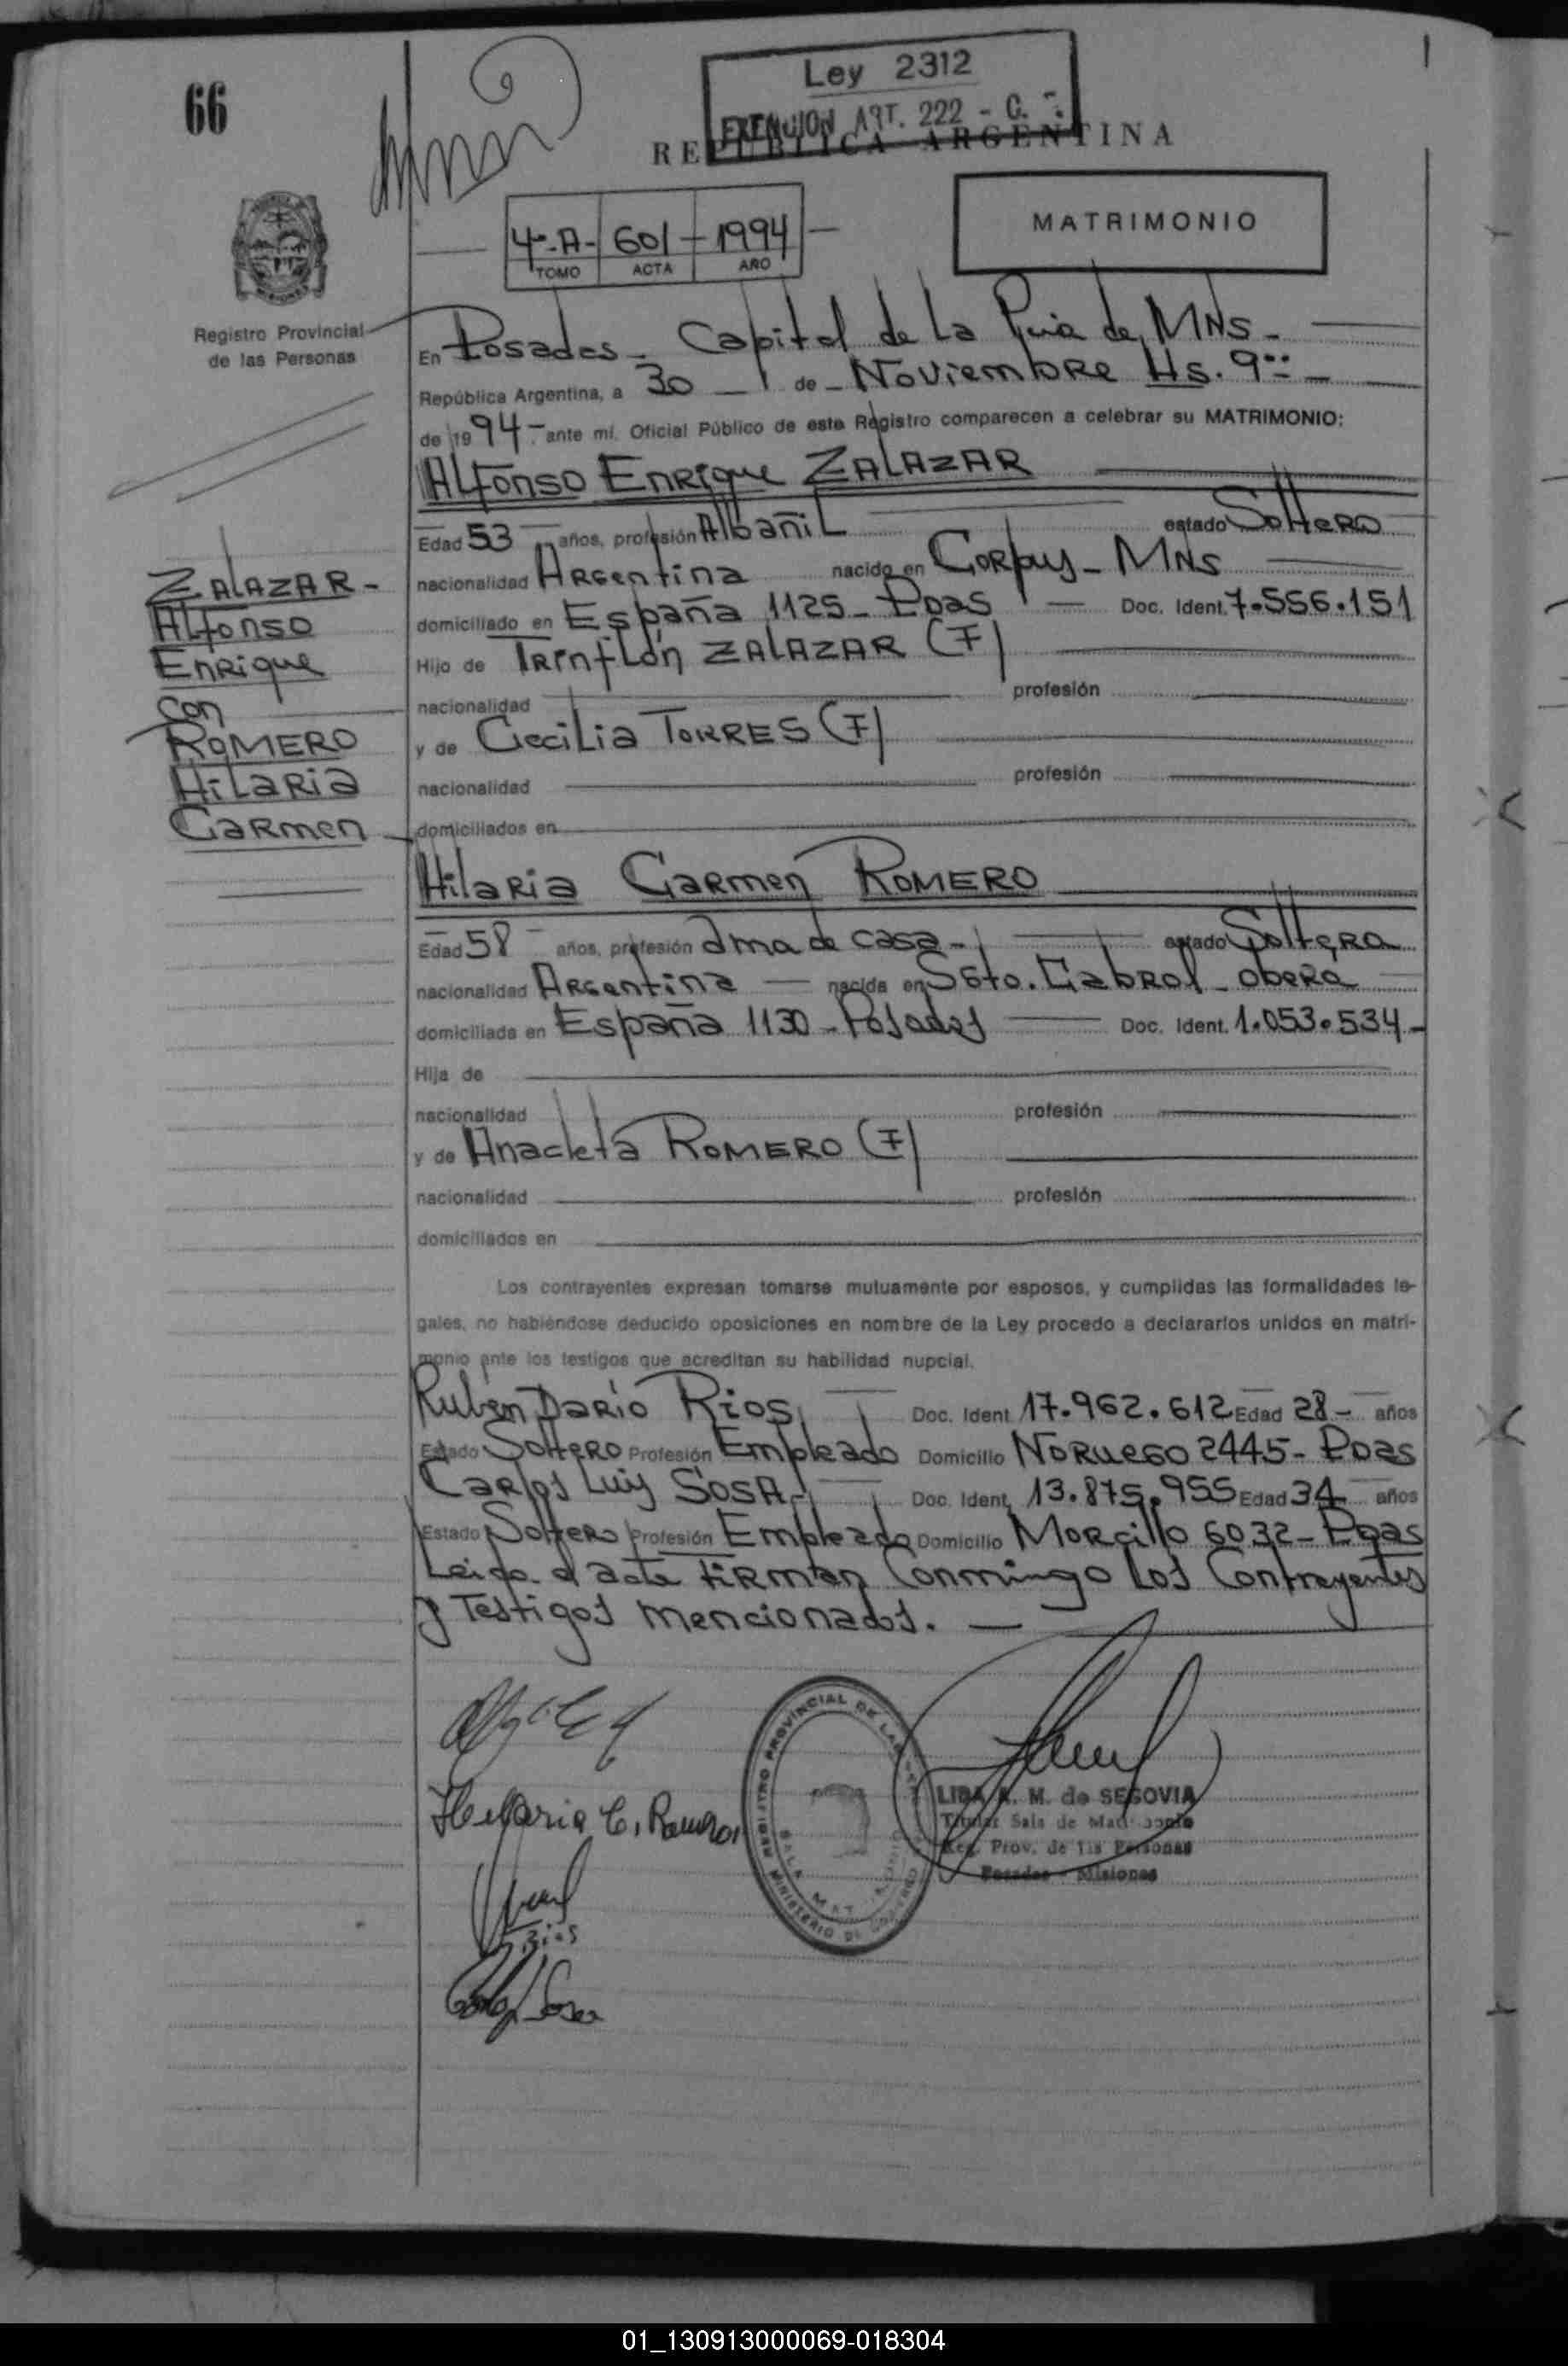 66
Ley 2312
EXENCION ART. 222 - C.
REPUBLICA ARGENTINA
4º-A- 601 - 1994
TOMO ACTA AÑO
MATRIMONIO
Registro Provincial
de las Personas
En Posadas - Capital de La Pcia de MNS -
República Argentina, a 30 - de - Noviembre Hs. 9
de 1994 - ante mí. Oficial Público de este Registro comparecen a celebrar su MATRIMONIO:
Alfonso Enrique ZALAZAR
Edad 53 años, profesión Albañil estado Soltero
nacionalidad Argentina nacido en Corpus - MNS
domiciliado en España 1125 - Pdas - Doc. Ident. 7.556.151
Hijo de ZALAZAR (F)
nacionalidad profesión
y de Cecilia TORRES (F)
nacionalidad profesión
domiciliados en
ZALAZAR -
Alfonso
Enrique
con
ROMERO
Hilaria
Carmen
Hilaria Carmen ROMERO
Edad 58 años, profesión ama de casa - estado Soltera
nacionalidad Argentina - nacida en Sgto. Cabral - Obera
domiciliada en España 1130 - Posadas Doc. Ident. 1.053.534 -
Hija de
nacionalidad profesión
y de Anacleta ROMERO (F)
nacionalidad profesión
domiciliados en
Los contrayentes expresan tomarse mutuamente por esposos, y cumplidas las formalidades le-
gales, no habiéndose deducido oposiciones en nombre de la Ley procedo a declararlos unidos en matri-
monio ante los testigos que acreditan su habilidad nupcial.
Rubén Darío Rios Doc. Ident. 17.962.612 Edad 28 - años
Estado Soltero Profesión Empleado Domicilio Noruego 2445 - Pdas
Carlos Luis SOSA - Doc. Ident. 13.875.955 Edad 34 años
Estado Soltero Profesión Empleado Domicilio Morcillo 6032 - Pdas
Leida el acta firman Conmingo Los Contrayentes
y Testigos mencionados. -
Hilaria C. Romero
Rios
Carlos Sosa
REGISTRO PROVINCIAL DE LAS
MINISTERIO DE GOBIERNO
SALA MAT
LIDA A. M. de SEGOVIA
Titular Sala de Matrimonio
Reg. Prov. de las Personas
Posadas - Misiones
01_130913000069-018304